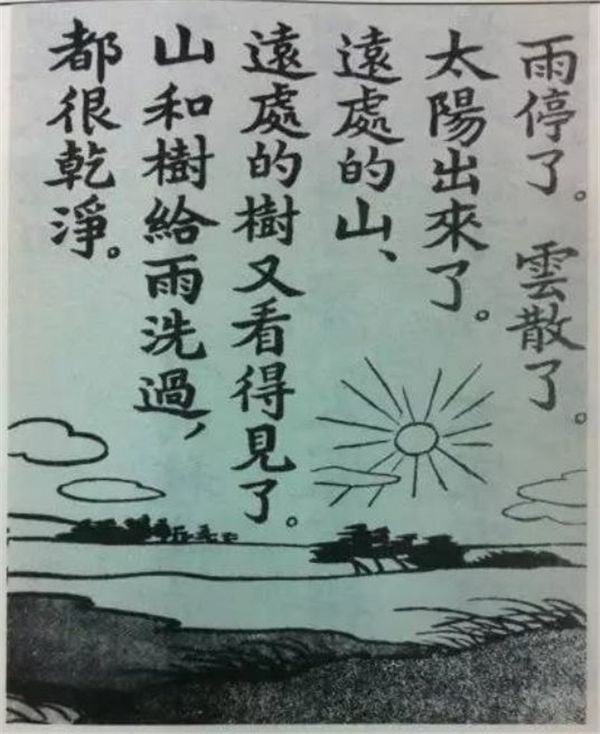 雨停了。雲散了。
太陽出來了。
遠處的山、
遠處的樹又看得見了。
山和樹給雨洗過，
都很乾淨。